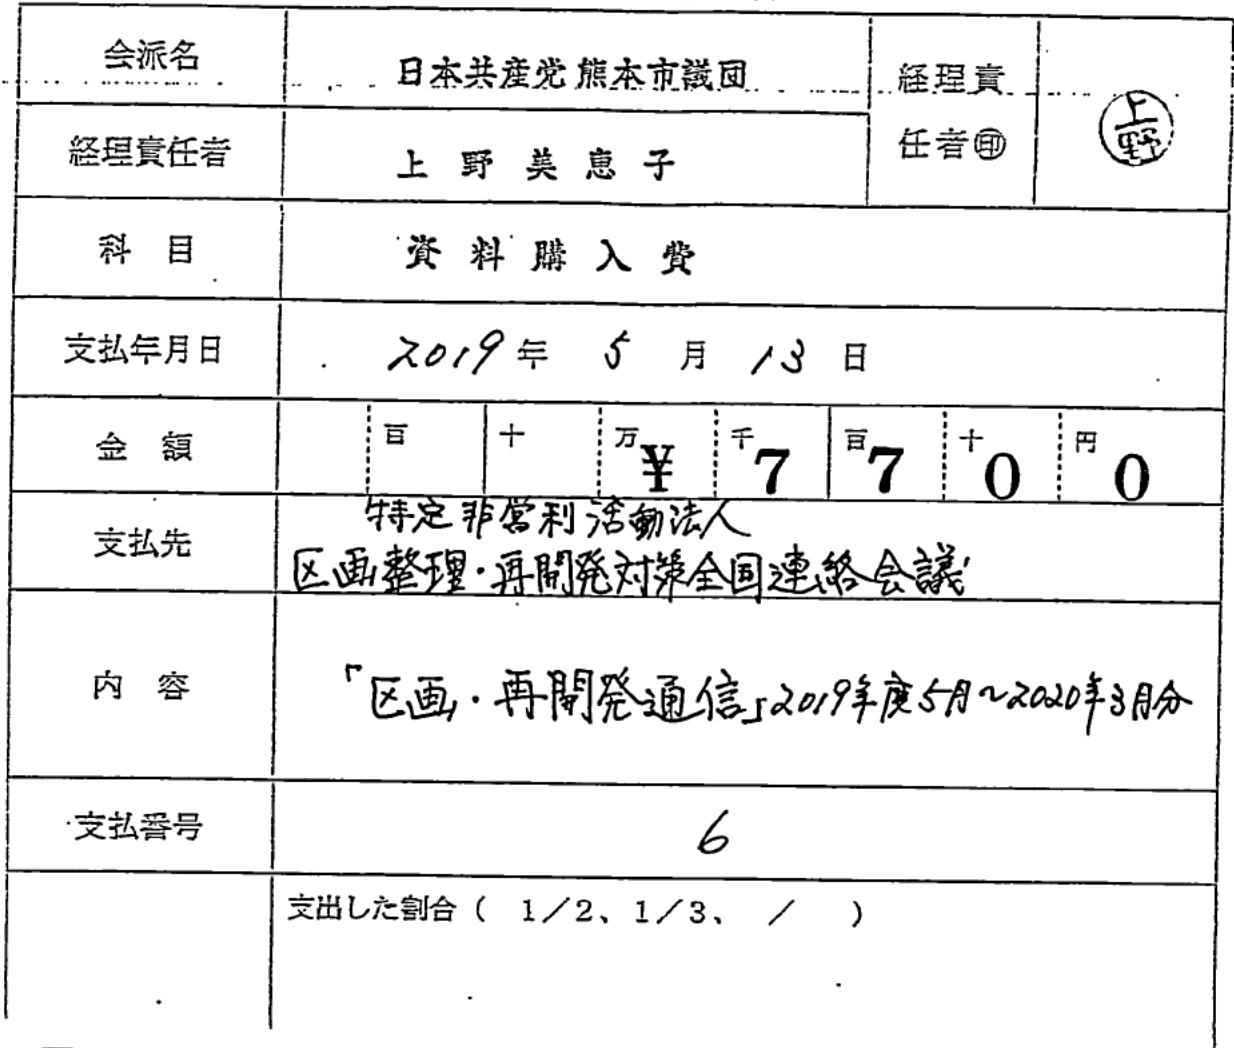 会派名 日本共産党熊本市議団 経理責任者㊞ 上野
経理責任者 上野美恵子
科目 資料購入費
支払年月日 2019年 5月 13日
金額 百 十 万¥ 千7 百7 十0 円0
支払先 特定非営利活動法人
区画整理・再開発対策全国連絡会議
内容 「区画・再開発通信」2019年度5月~2020年3月分
支払番号 6
支出した割合( 1/2、1/3、 / )